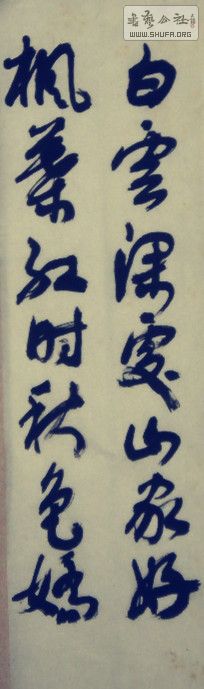 白雲深處山家好
楓葉红时秋色嬌
書藝公社
WWW.SHUFA.ORG